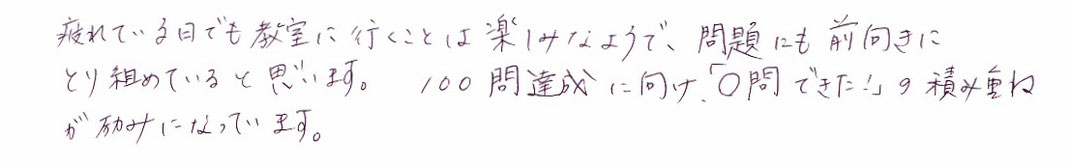 疲れている日でも教室に行くことは楽しみなようで、問題にも前向きに
とり組めていると思います。 100問達成に向け、「〇問できた!」の積み重ね
が励みになっています。